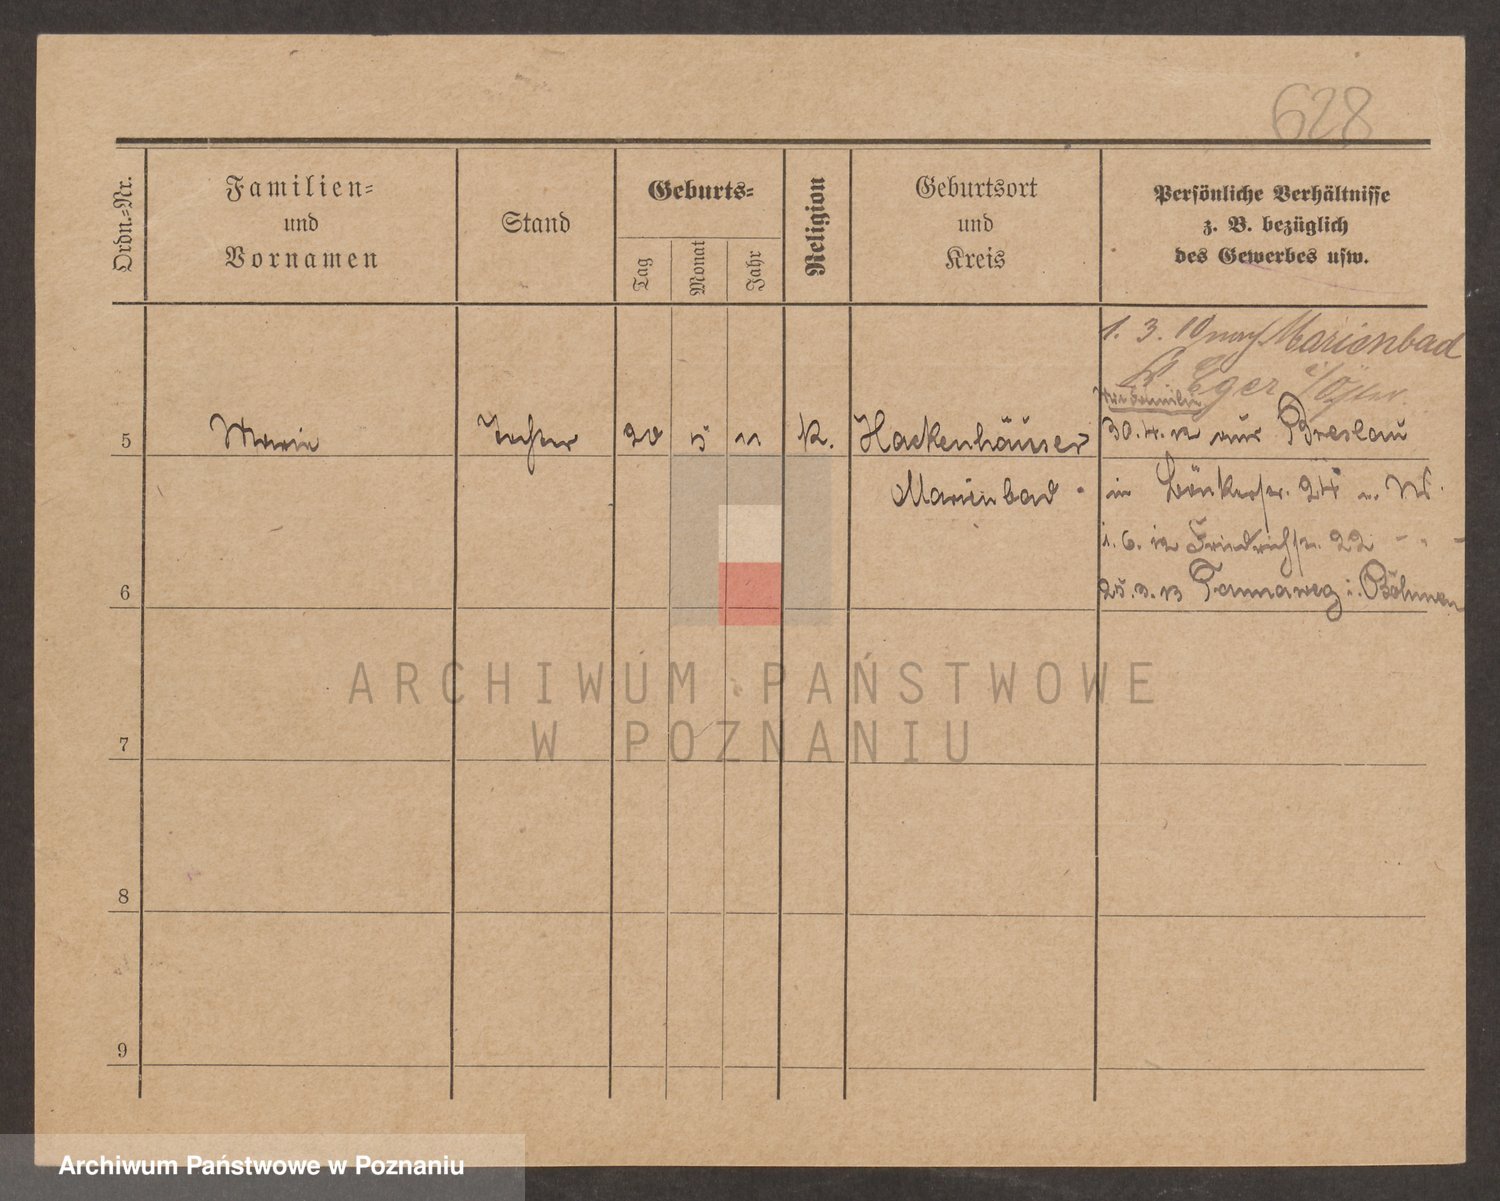 628
Ordn.-Nr.
Familien-
und
Vornamen
Stand
Geburts-
Tag
Monat
Jahr
Religion
Geburtsort
und
Kreis
Persönliche Verhältnisse
z. B. bezüglich
des Gewerbes usw.
1. 3. 10 nach Marienbad
Eger
5 Marie Tochter 20 5 11 K. Hackenhäuser 30.4.12 aus Breslau
Marienbad in 24
1. 6. 12 Friedrichstr. 22
6 25. 3. 13 i. Böhmen
7
8
9
ARCHIWUM PAŃSTWOWE
W POZNANIU
Archiwum Państwowe w Poznaniu